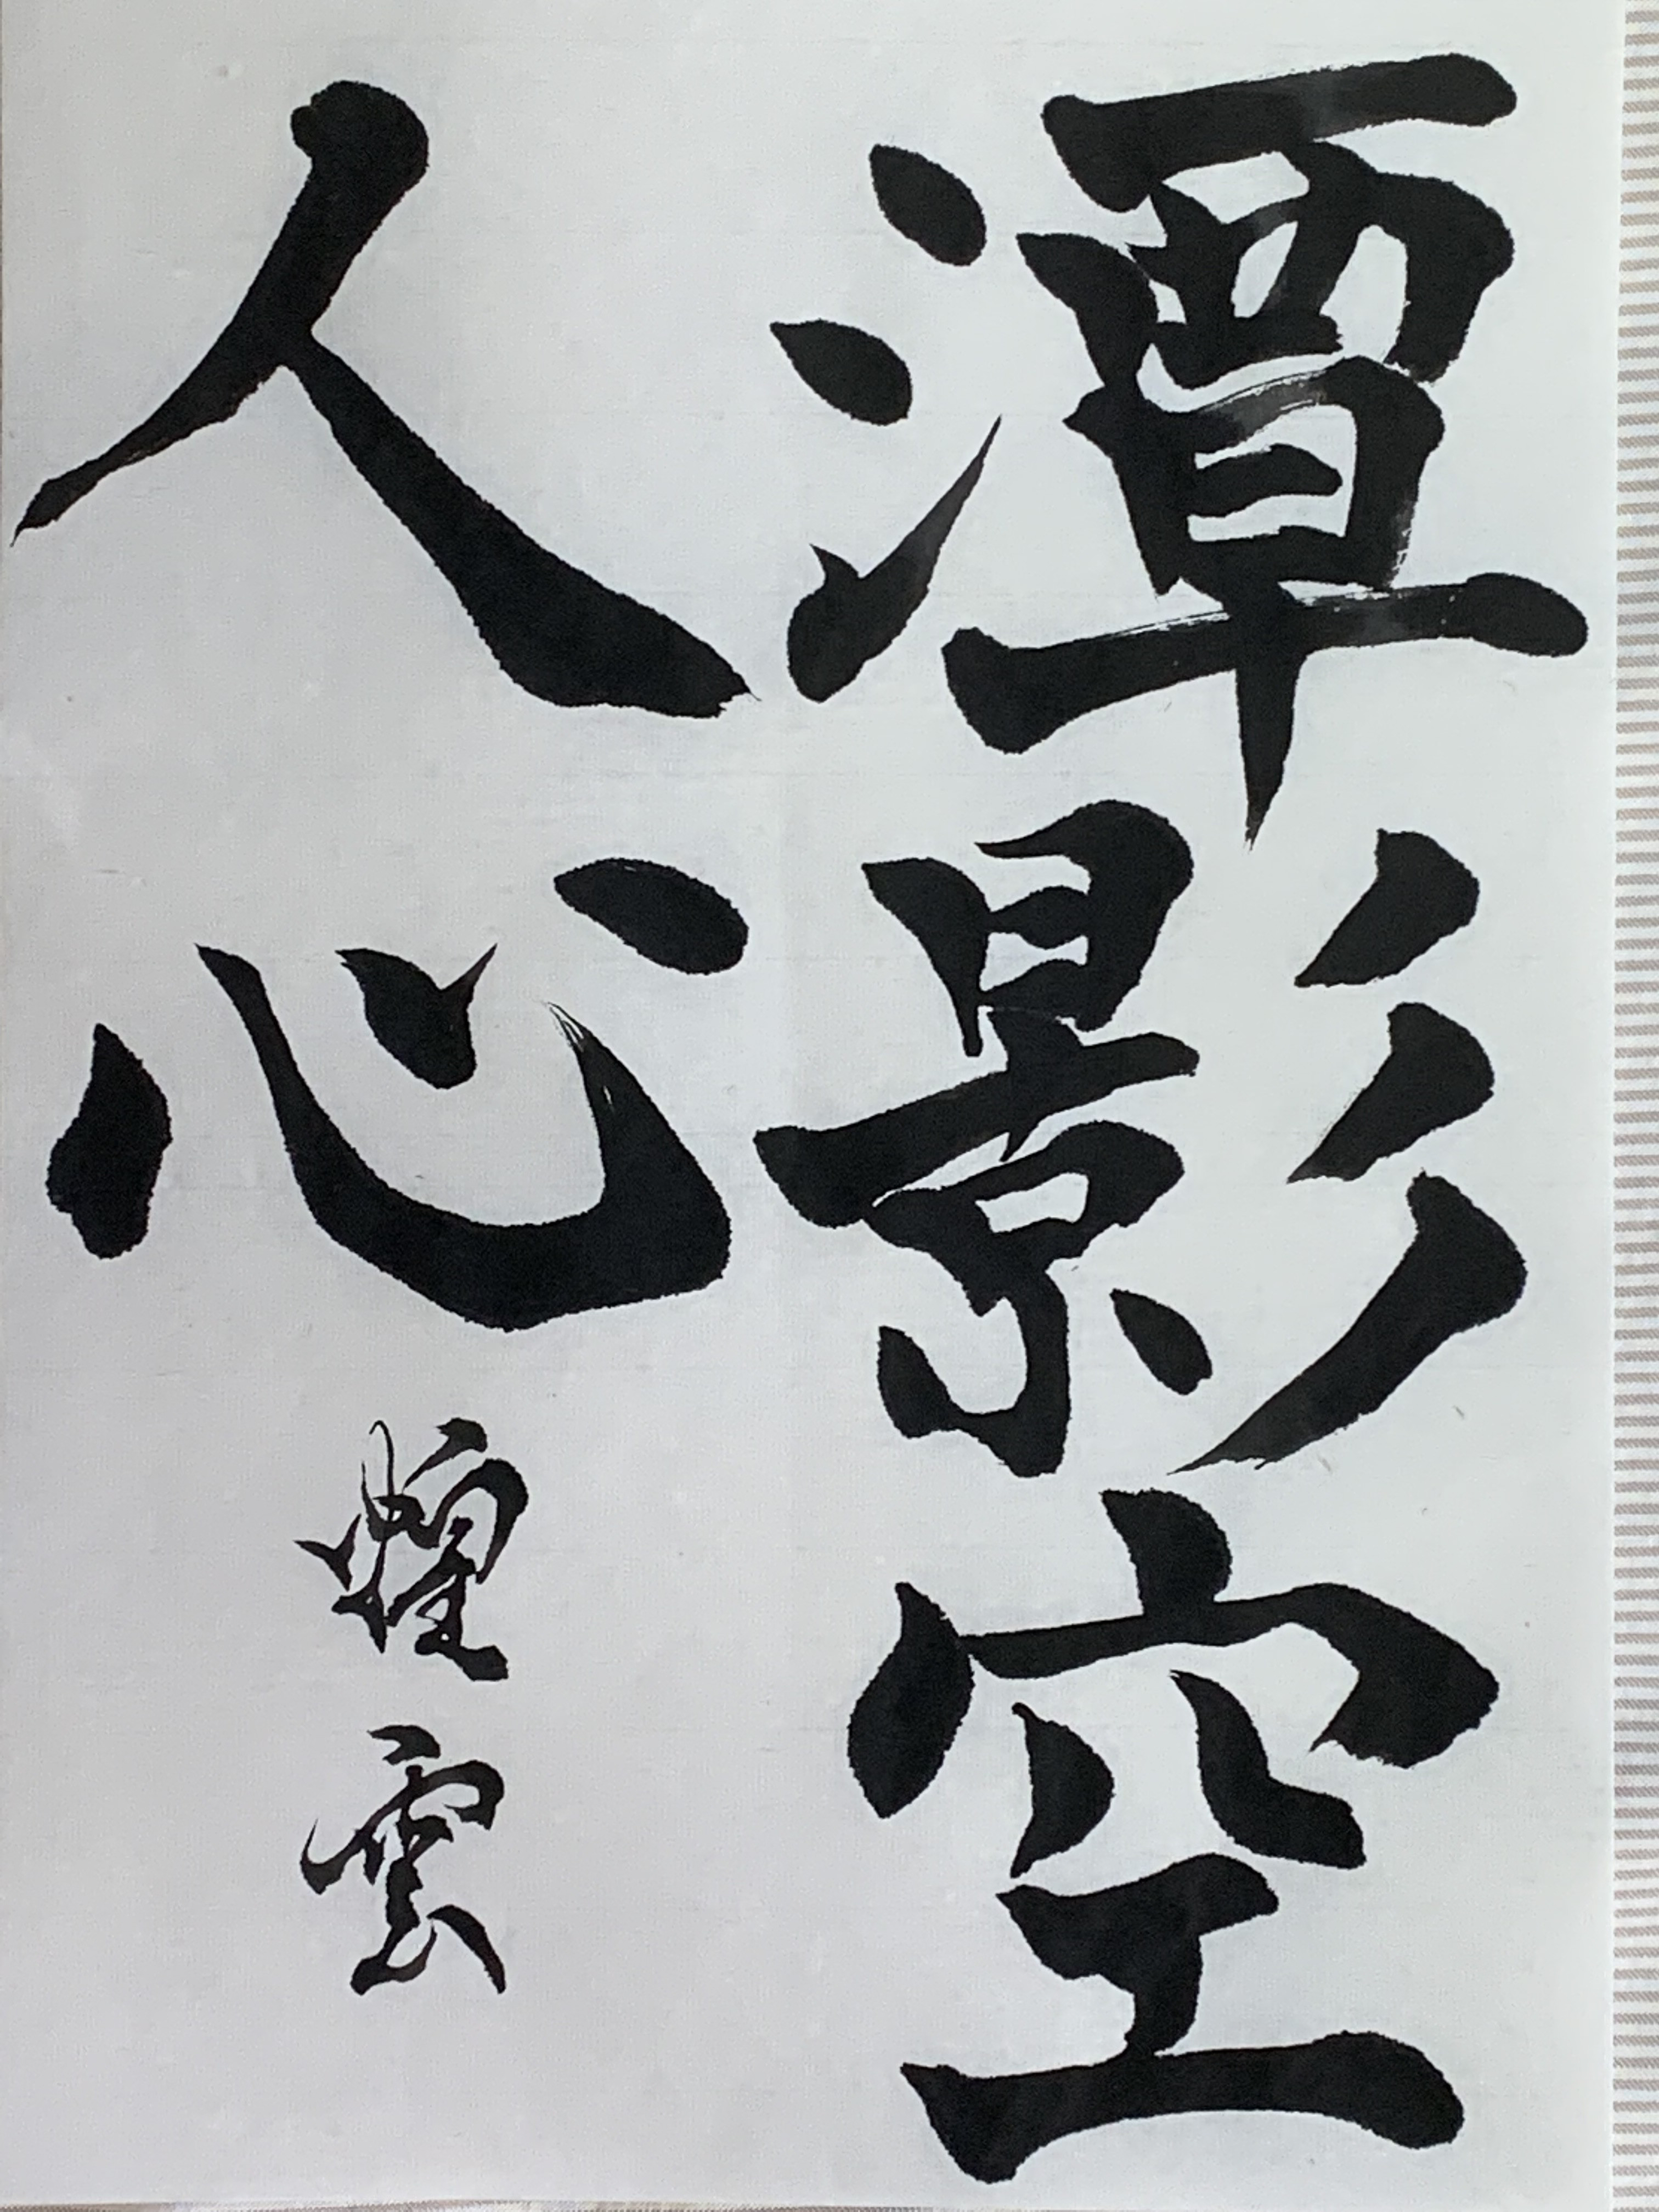 潭影空
人心 煌雲